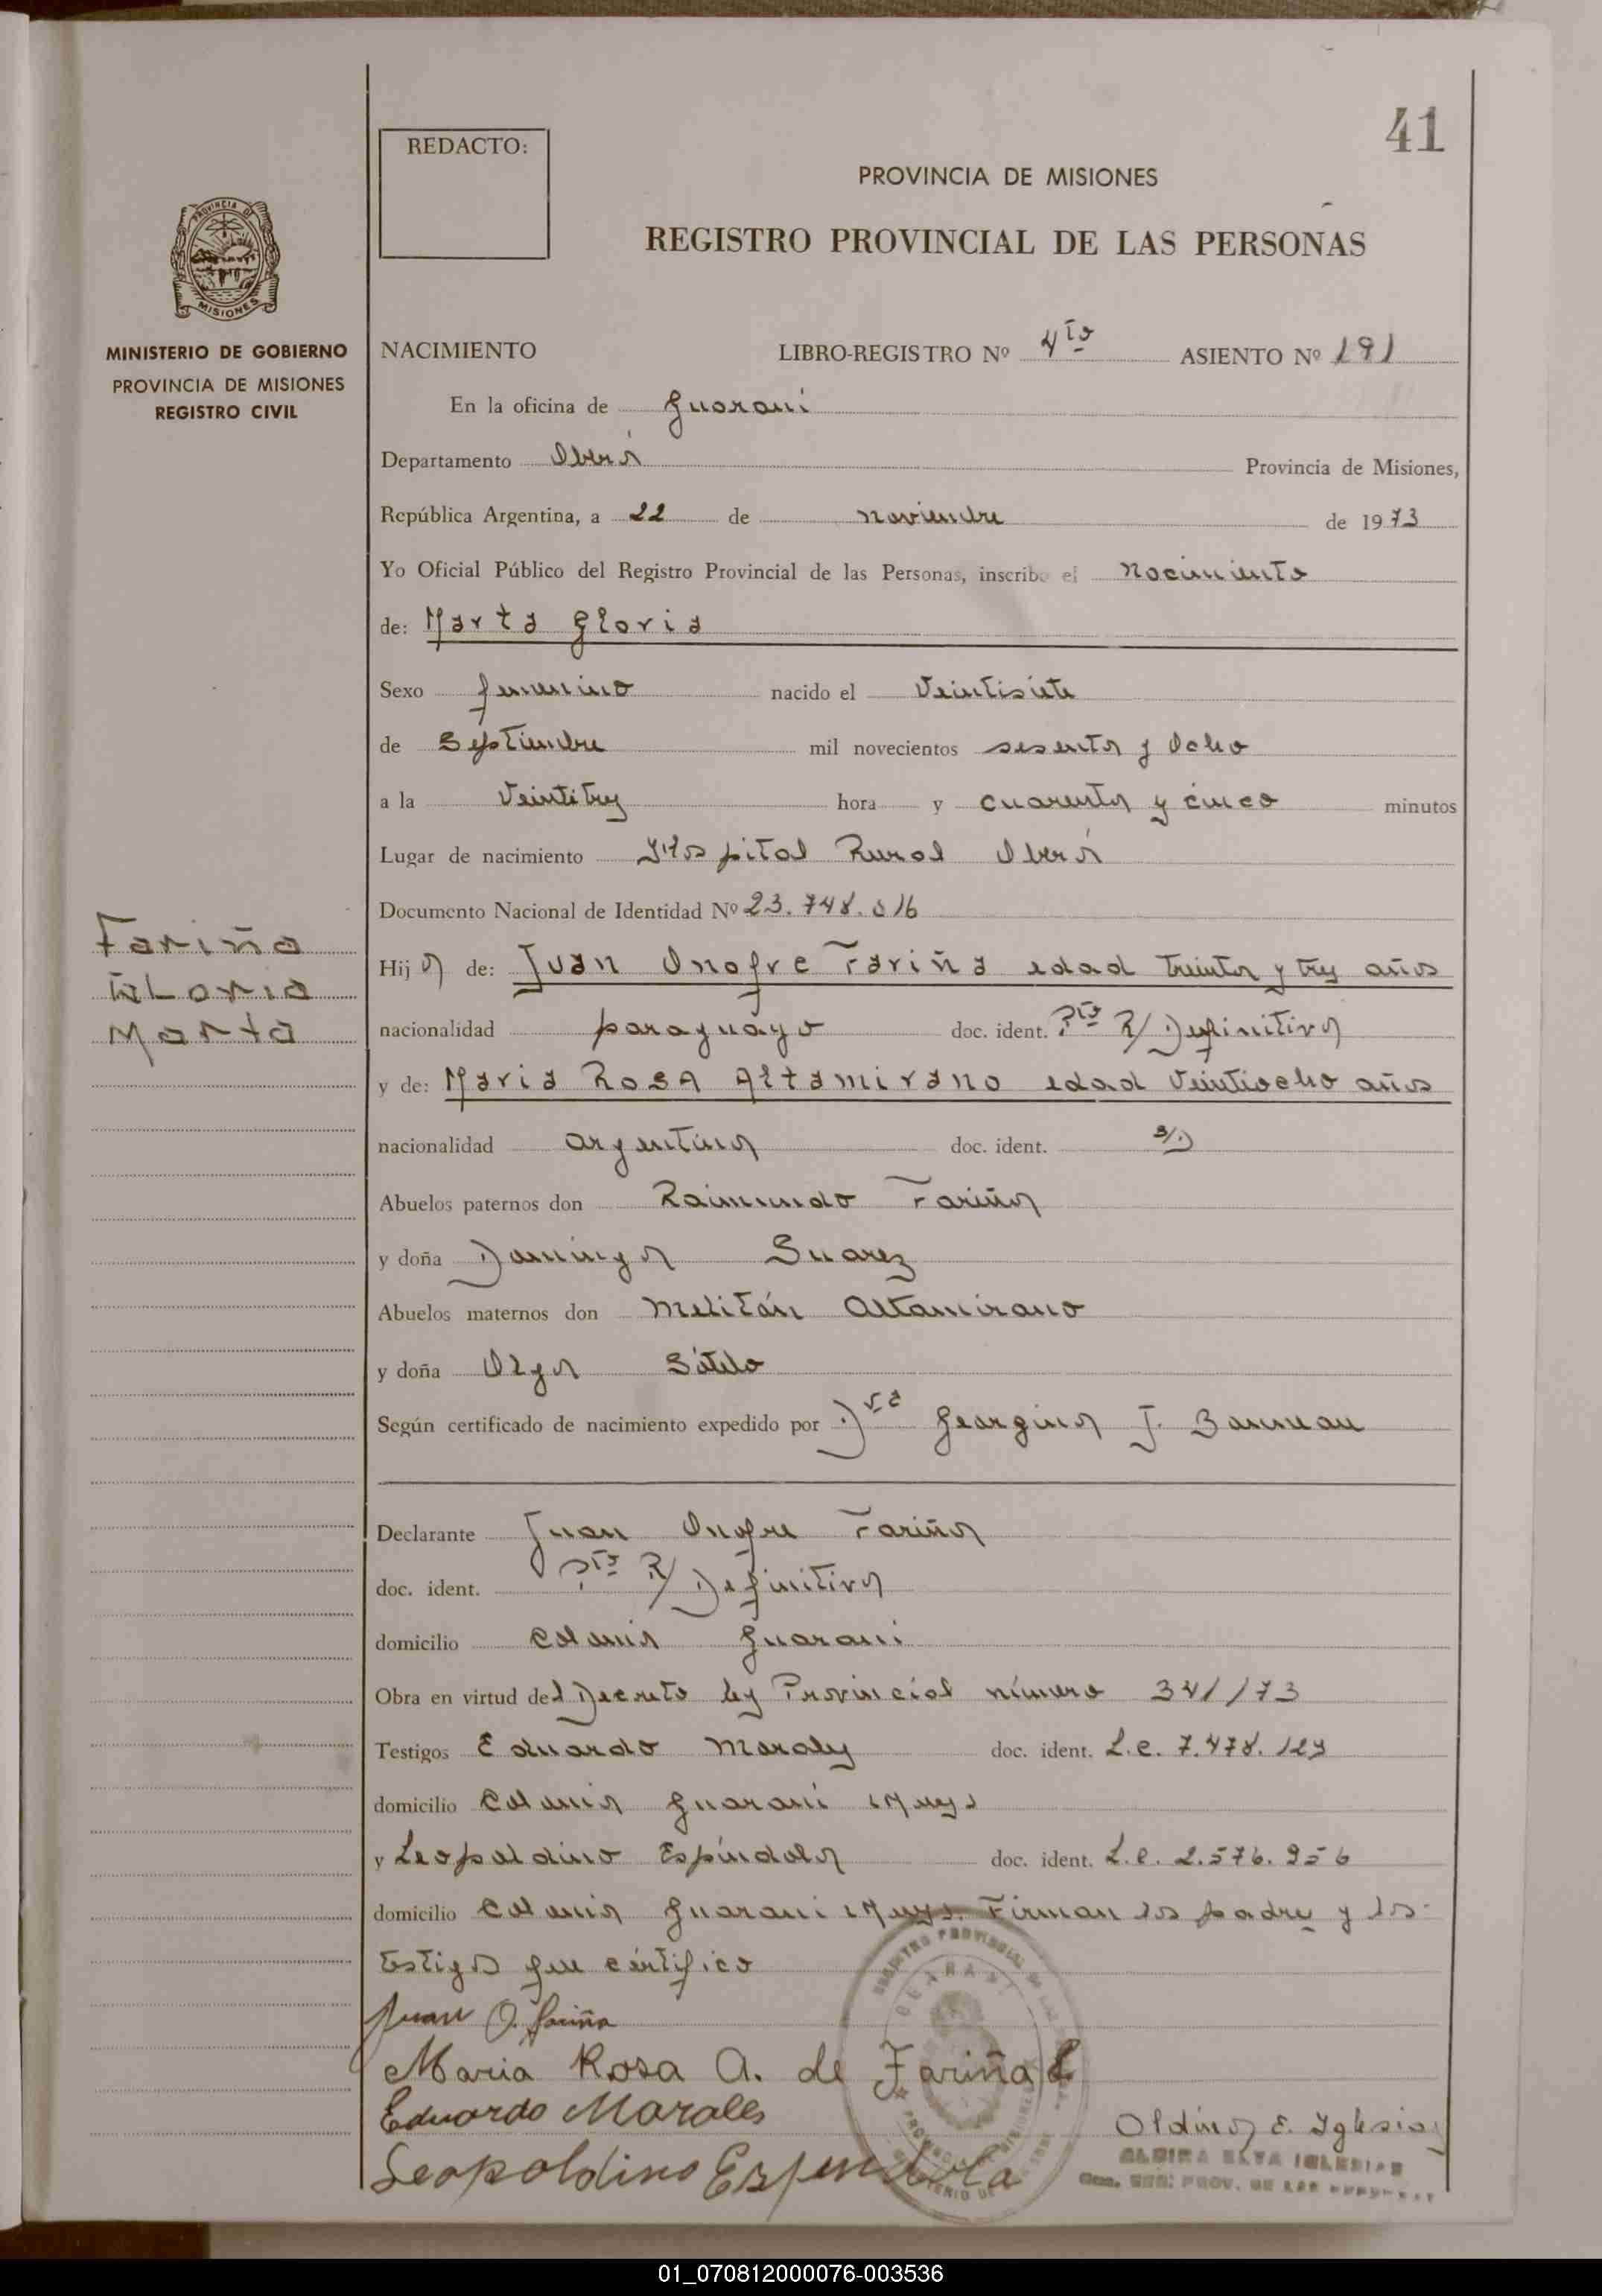 41
REDACTO:
PROVINCIA DE MISIONES
REGISTRO PROVINCIAL DE LAS PERSONAS
PROVINCIA DE
MISIONES
MINISTERIO DE GOBIERNO
PROVINCIA DE MISIONES
REGISTRO CIVIL
NACIMIENTO LIBRO-REGISTRO Nº 4to ASIENTO Nº 191
En la oficina de Guaraní
Departamento Oberá Provincia de Misiones,
República Argentina, a 22 de noviembre de 1973
Yo Oficial Público del Registro Provincial de las Personas, inscribo el Nacimiento
de: Marta Gloria
Sexo femenino nacido el Veintisiete
de Septiembre mil novecientos sesenta y Ocho
a la Veintitres hora y cuarenta y cinco minutos
Lugar de nacimiento Hospital Rural Oberá
Documento Nacional de Identidad Nº 23.748.016
Fariña
Gloria
Marta
Hija de: Juan Onofre Fariña edad treinta y tres años
nacionalidad paraguayo doc. ident. Pto R/ Definitiva
y de: Maria Rosa Altamirano edad Veintiocho años
nacionalidad argentina doc. ident. s/D
Abuelos paternos don Raimundo Fariña
y doña Dominga Suarez
Abuelos maternos don Melitán Altamirano
y doña Olga Sótelo
Según certificado de nacimiento expedido por Dra Georgina J.
Declarante Juan Onofre Fariña
doc. ident. Pto R/ Definitiva
domicilio Colonia Guaraní
Obra en virtud del Decreto ley Provincial número 341/73
Testigos Eduardo Morales doc. ident. L.e. 7.478.129
domicilio Colonia Guaraní
y Leopoldino Espíndola doc. ident. L.e. 2.576.956
domicilio Colonia Guaraní Firman los padres y los
testigos que certifico
Juan O. Fariña
Maria Rosa A. de Fariña
Eduardo Morales
Leopoldino Espindola
REGISTRO PROVINCIAL DE LAS
GUARANI
IGLESIAS
REG. PROV. DE LAS
01_070812000076-003536